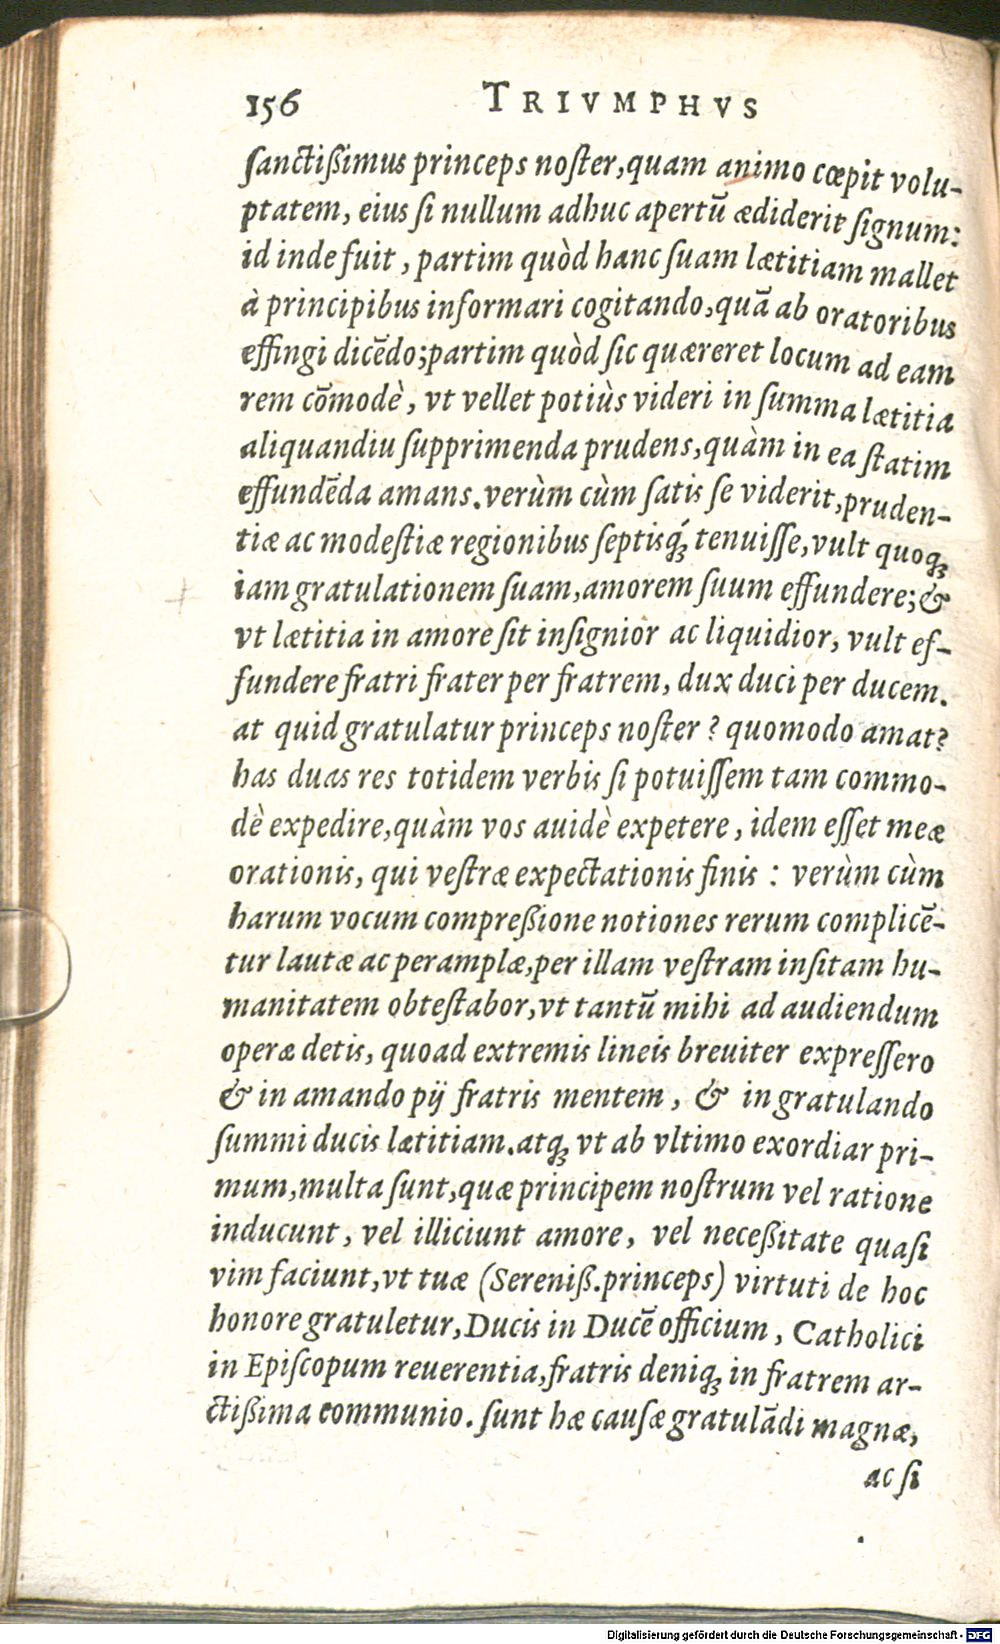 156 TRIVMPHVS
ſanctißimus princeps noſter,quam animo cœpit volu-
ptatem, eius ſi nullum adhuc apertū ædiderit ſignum:
id inde fuit , partim quòd hanc ſuam lætitiam mallet
à principibus informari cogitando,quā ab oratoribus
effingi dicēdo;partim quòd ſic quæreret locum ad eam
rem cōmodè , vt vellet potiùs videri in ſumma lætitia
aliquandiu ſupprimenda prudens,quàm in ea ſtatim
effundēda amans. verùm cùm ſatis ſe viderit,pruden-
tiæ ac modeſtiæ regionibus ſeptisq́ꝫ tenuiſſe,vult quoqꝫ
iam gratulationem ſuam,amorem ſuum effundere;&
vt lætitia in amore ſit inſignior ac liquidior, vult ef-
fundere fratri frater per fratrem, dux duci per ducem.
at quid gratulatur princeps noſter ? quomodo amat?
has duas res totidem verbis ſi potuiſſem tam commo-
dè expedire,quàm vos auidè expetere , idem eſſet meæ
orationis, qui veſtræ expectationis finis : verùm cùm
harum vocum compreßione notiones rerum complicē-
tur lautæ ac peramplæ,per illam veſtram inſitam hu-
manitatem obteſtabor,vt tantū mihi ad audiendum
operæ detis, quoad extremis lineis breuiter expreſſero
& in amando pij fratris mentem , & in gratulando
ſummi ducis lætitiam.atqꝫ vt ab vltimo exordiar pri-
mum,multa ſunt,quæ principem noſtrum vel ratione
inducunt , vel illiciunt amore, vel neceßitate quaſi
vim faciunt,vt tuæ (Sereniß.princeps) virtuti de hoc
honore gratuletur,Ducis in Ducē officium , Catholici
in Epiſcopum reuerentia,fratris deniqꝫ in fratrem ar-
ctißima communio. ſunt hæ cauſæ gratulādi magnæ,
ac ſi
Digitalisierung gefördert durch die Deutsche Forschungsgemeinschaft - DFG